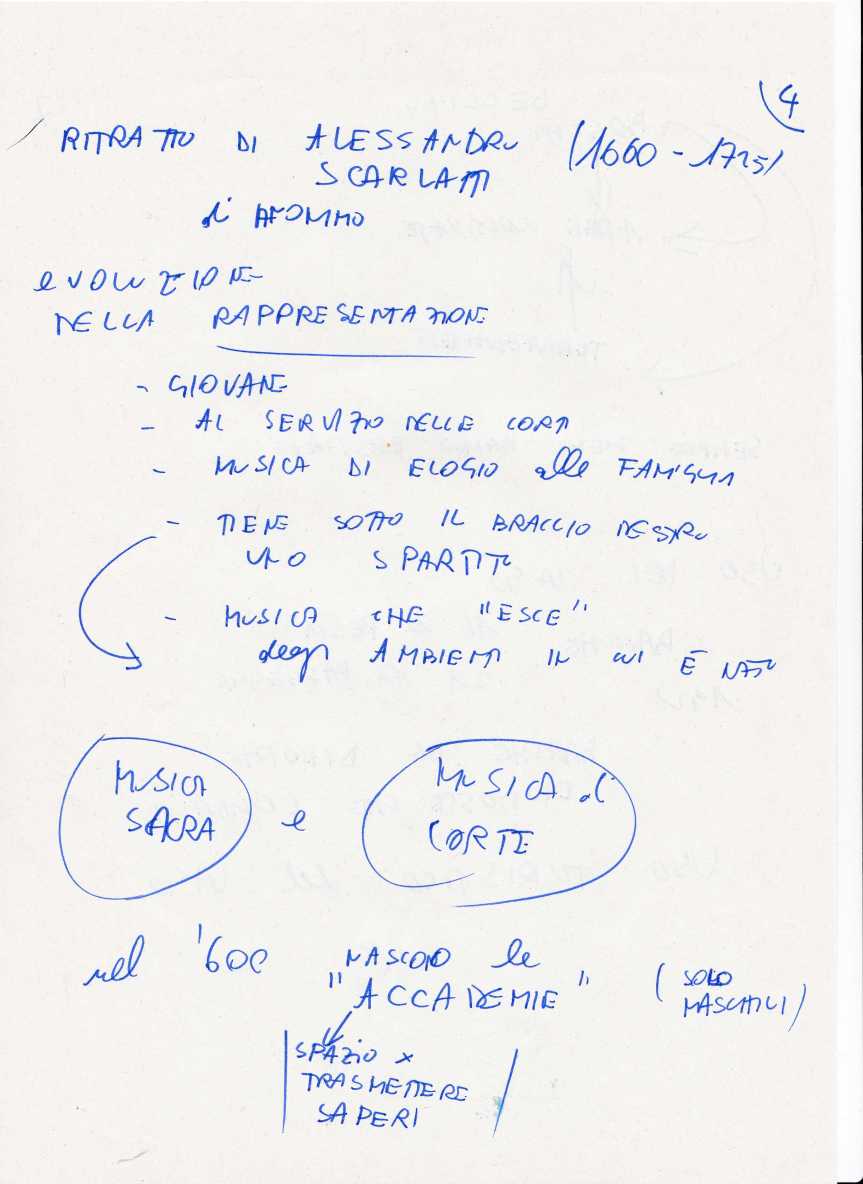 4
RITRATTO DI ALESSANDRO (1660 - 1725)
SCARLATTI
di ANONIMO
EVOLUZIONE
DELLA RAPPRESENTAZIONE
- GIOVANE
- AL SERVIZIO DELLE CORTI
- MUSICA DI ELOGIO alle FAMIGLIE
- TIENE SOTTO IL BRACCIO DESTRO
UNO SPARTITO
- MUSICA CHE "ESCE"
degli AMBIENTI IN CUI È NATO
MUSICA
SACRA
e
MUSICA di
CORTE
nel '600 NASCONO le
"ACCADEMIE" (SOLO
MASCHILI)
SPAZIO x
TRASMETTERE
SAPERI